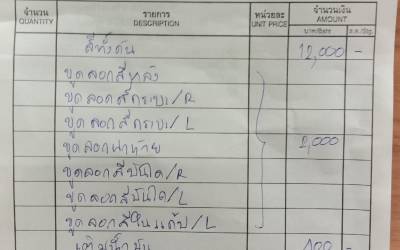 จำนวน รายการ หน่วยละ จำนวนเงิน
QUANTITY DESCRIPTION UNIT PRICE AMOUNT
บาท/Baht ส.ต./Stg.
สีทั้งคัน 12,000 -
ขูดลอกสีหลัง
ขูดลอกสีกระบะ/R
ขูดลอกสีกระบะ/L
ขูดลอกฝาท้าย 2,000 -
ขูดลอกสีบันได/R
ขูดลอกสีบันได/L
ขูดลอกสีในแค๊ป/L
เติมน้ำมัน